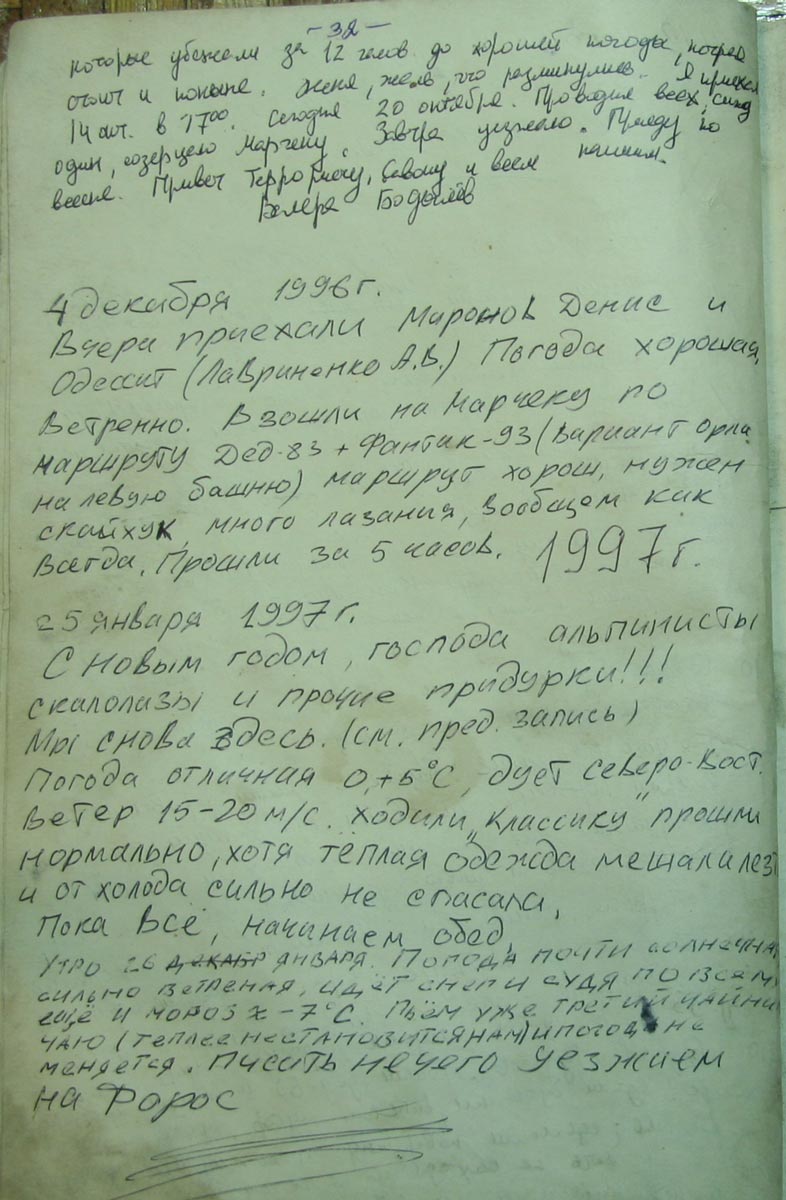 - 32 -
которые убежали за 12 часов до хорошей погоды,
стоит и поныне. Женя, жаль, что разминулись. Я приехал
14 окт. в 17⁰⁰. Сегодня 20 октября. Проводил всех, сижу
один, созерцаю Марчеку. Завтра уезжаю. Приеду по
весне. Привет Террористу, и всем нашим.
Валера Бодылёв
4 декабря 1996 г.
Вчера приехали Миронов Денис и
Одессит (Лавриненко А.В.) Погода хорошая,
Ветренно. Взошли на Марчеку по
маршруту Дед-83 + Фантик-93 (вариант орла
на левую башню) маршрут хорош, нужен
скайхук, много лазания, вообщем как
всегда. Прошли за 5 часов. 1997 г.
25 января 1997 г.
С новым годом, господа альпинисты
скалолазы и прочие придурки!!!
Мы снова здесь. (см. пред. запись)
Погода отличная 0,+5°С, дует северо-вост.
ветер 15-20 м/с. ходили „Классику" прошли
нормально, хотя тёплая одежда мешала лезть
и от холода сильно не спасала,
Пока всё, начинаем обед,
Утро 26 декабр января. Погода почти солнечная
сильно ветреная, идёт снег и судя по всему
ещё и мороз х -7°С. Пьём уже третий чайник
чаю (теплее нестановится нам) и погода не
меняется. Писать нечего уезжаем
на Форос